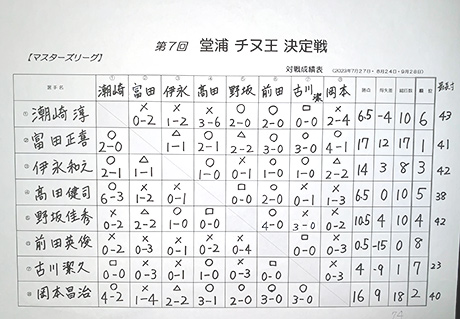 第7回 堂浦 チヌ王 決定戦
【マスターズリーグ】
対戦成績表 (2023年7月27日・8月24日・9月28日)
選手名 ① 潮崎 ② 富田 ③ 伊永 ④ 高田 ⑤ 野坂 ⑥ 前田 ⑦ 古川潔 ⑧ 岡本 勝点 得失差 総匹数 順位
① 潮崎 淳 × 0-2 × 1-2 × 3-6 ○ 2-0 ○ 2-0 □ 0-0 × 2-4 6.5 -4 10 6 43
② 富田正喜 ○ 2-0 △ 1-1 ○ 2-1 △ 2-2 ○ 3-0 ○ 3-0 ○ 4-1 17 12 17 1 41
③ 伊永和之 ○ 2-1 △ 1-1 ○ 1-0 × 0-1 ○ 1-0 ○ 1-0 △ 2-2 14 3 8 3 42
④ 高田健司 ○ 6-3 × 1-2 × 0-1 □ 0-0 ○ 2-0 × 0-1 × 1-3 6.5 0 10 5 38
⑤ 野坂佳秀 × 0-2 △ 2-2 ○ 1-0 □ 0-0 ○ 3-0 ○ 3-0 × 1-2 10.5 4 10 4 42
⑥ 前田英俊 × 0-2 × 0-3 × 0-1 × 0-2 × 0-3 □ 0-0 × 0-3 0.5 -15 0 8
⑦ 古川潔久 □ 0-0 × 0-3 × 0-1 ○ 1-0 × 0-3 □ 0-0 × 0-3 4 -9 1 7 23
⑧ 岡本昌治 ○ 4-2 × 1-4 △ 2-2 ○ 3-1 ○ 2-1 ○ 3-0 ○ 3-0 16 9 18 2 40
74